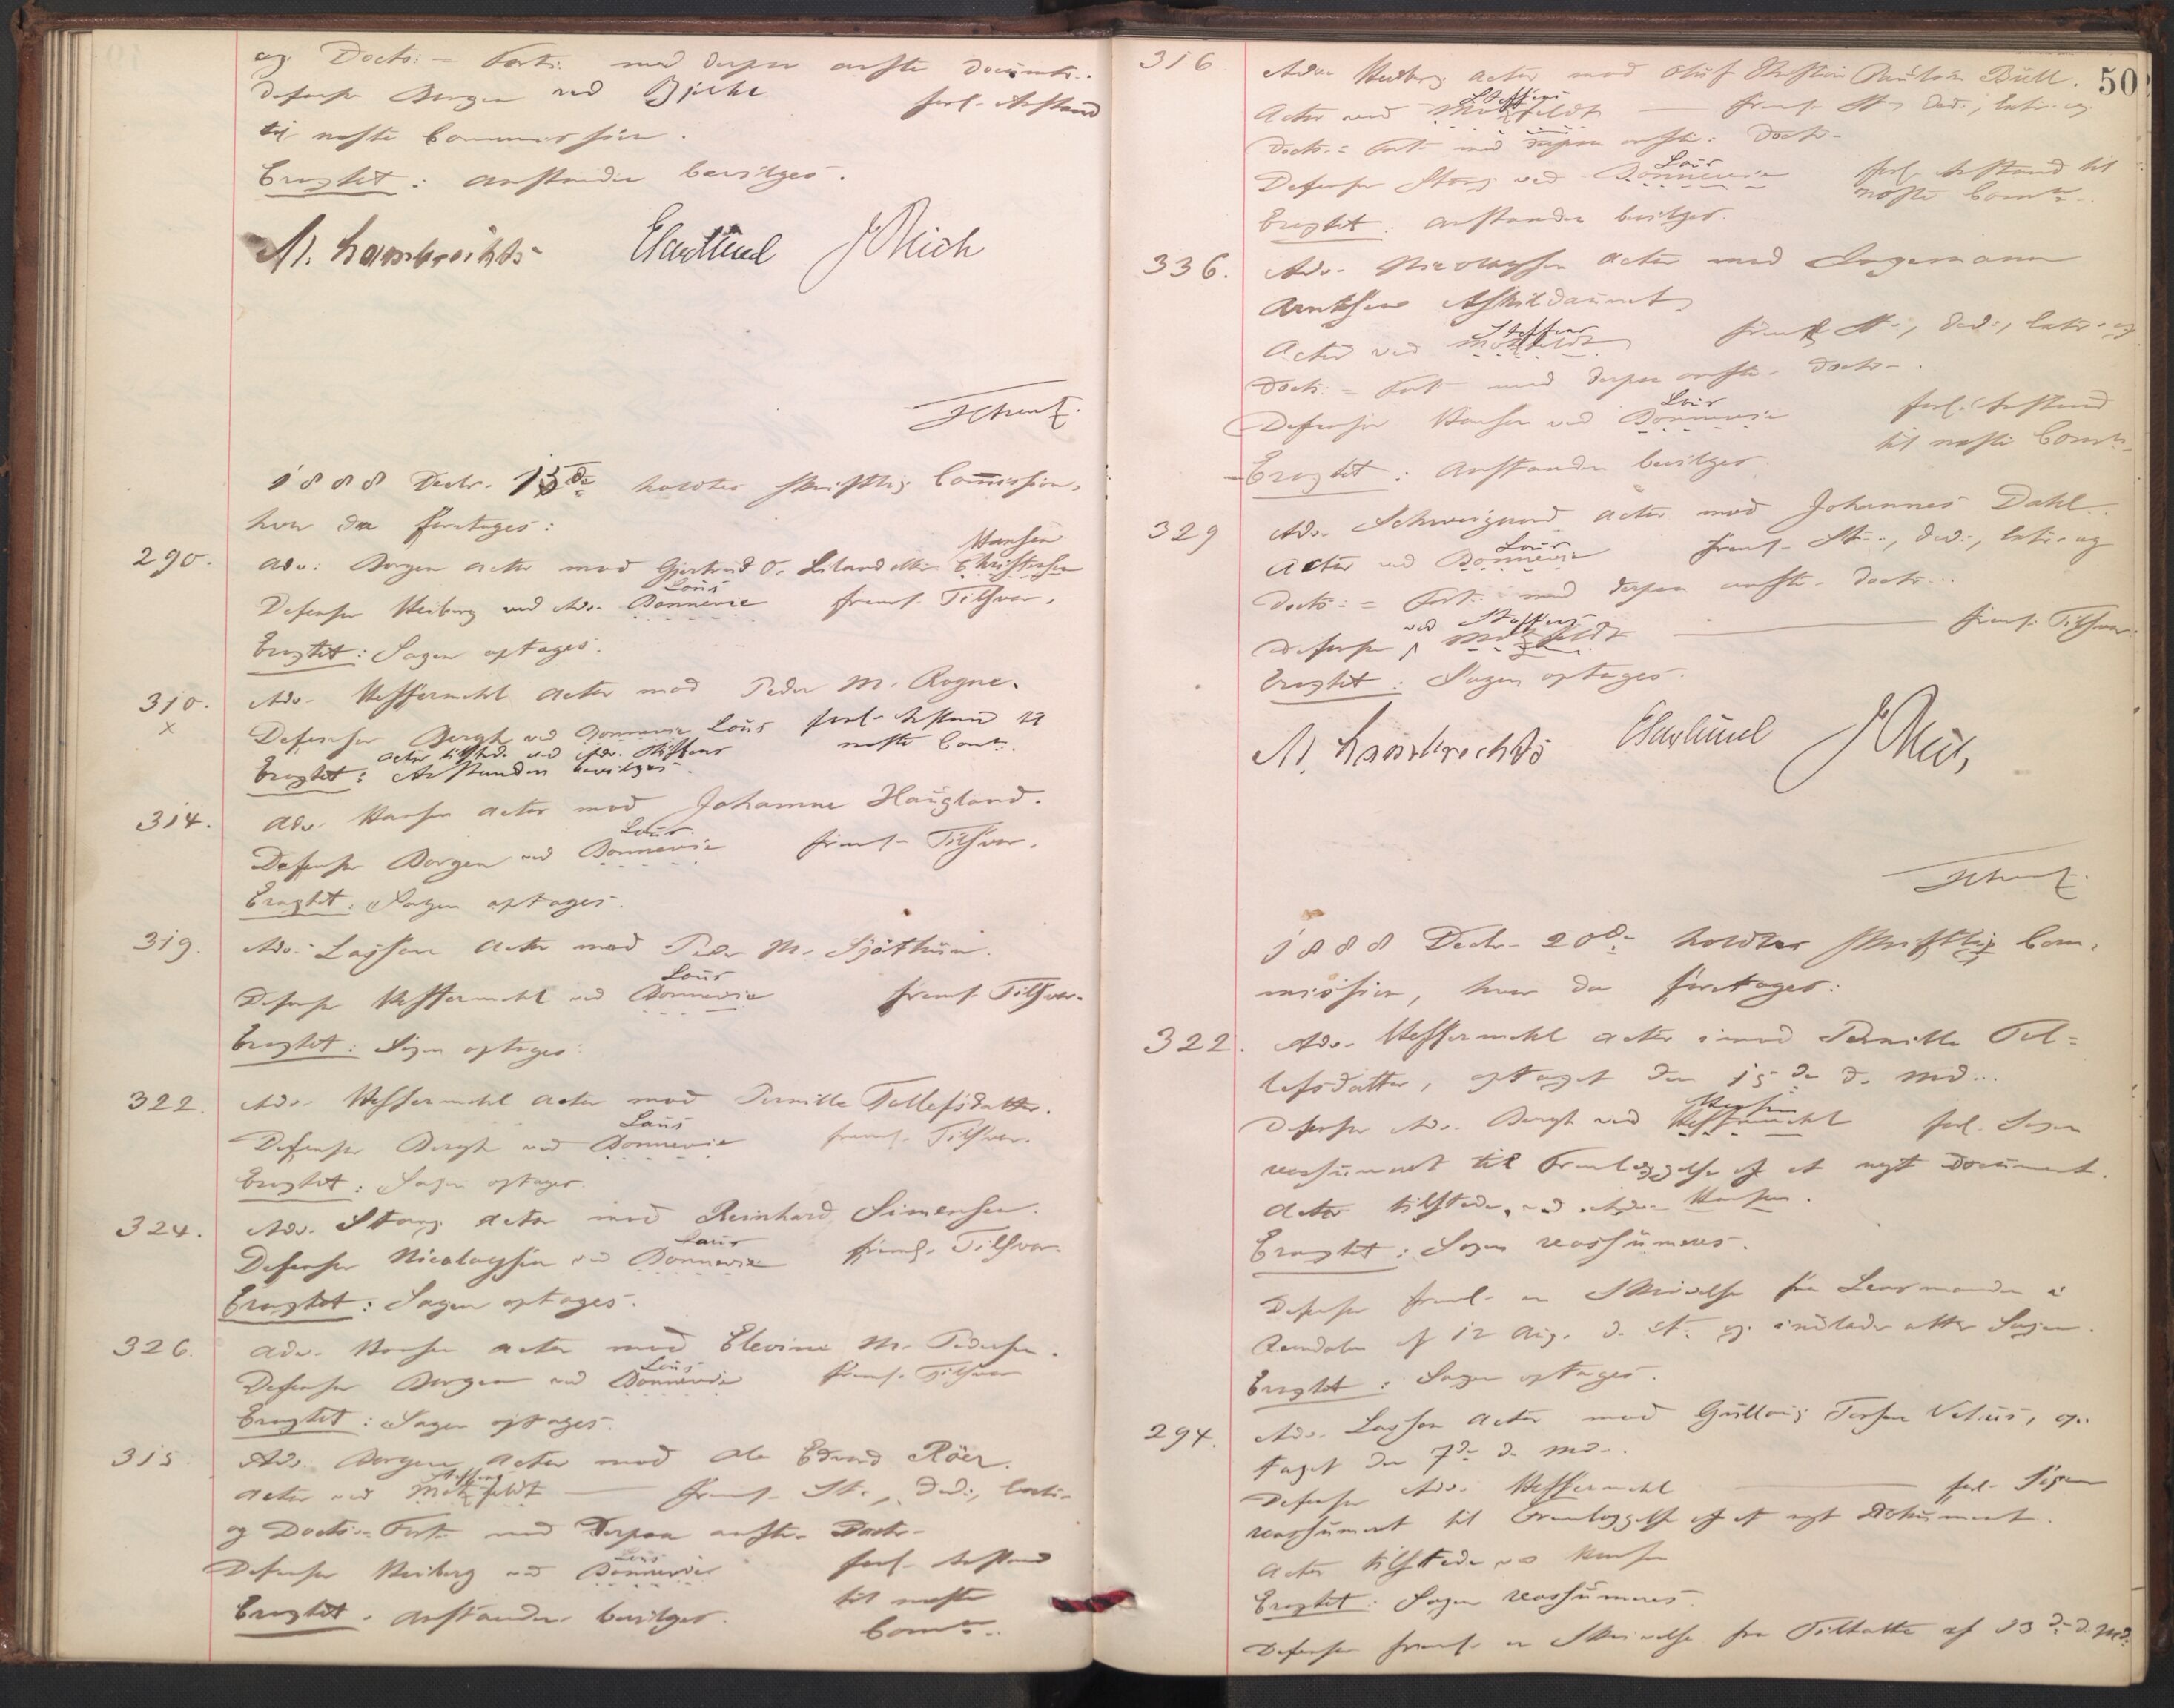 og Docts: = Fort: med derpaa anfte Documtr.
Defensor Borgen ved Bjelke forl. Anstand
til næste Commission.
Eragtet: Anstanden bevilges.
M. Lambrechts EHaglund JReich
1888 Decbr. 13de holdtes skriftlig Commission,
hvor da foretoges:
290. Adv. Borgen actor mod Gjertrud O. Liland eller Christensen Hansen
Defensor Heiberg ved Adv. Bonnevie Lous freml. Tilsvar.
Eragtet: Sagen optages.
310. Adv. Heffermehl actor mod Peder M. Rogne.
x
Defensor Bergh ved Bonnevie Lous forl. Anstand til
Actor tilstede ved Adv. Steffens næste Comm:
Eragtet: Anstanden bevilges.
314. Adv. Hansen actor mod Johanne Haugland.
Lous
Defensor Borgen ved Bonnevie freml. Tilsvar.
Eragtet: Sagen optages.
319. Adv. Lassen actor mod Peder M. Sjöthun.
Lous
Defensor Heffermehl ved Bonnevie freml. Tilsvar.
Eragtet: Sagen optages.
322. Adv. Heffermehl actor mod Pernille Tollefsdatter.
Lous
Defensor Bergh ved Bonnevie freml. Tilsvar.
Eragtet: Sagen optages.
324. Adv. Stang actor mod Reinhard Simensen.
Lous
Defensor Nicolaysen ved Bonnevie freml. Tilsvar.
Eragtet: Sagen optages.
326. Adv. Hansen actor mod Elevine M. Pedersen.
Lous
Defensor Borgen ved Bonnevie freml. Tilsvar
Eragtet: Sagen optages.
315 Adv. Borgen actor mod Ole Edvard Röer.
Steffens
Actor ved Motzfeldt freml. St:, Ded:,
og Docts: = Fort: med derpaa anfte Docts-
Lous
Defensor Heiberg ved Bonnevie forl. Anstand
til næste
Eragtet. Anstanden bevilges. Comm:
50
316 Adv. Heiberg actor mod Oluf Bull.
Steffens
Actor ved Motzfeldt freml. St:, Ded:, og
Docts: = Fort: med derpaa anfte: Docts-
Lous
Defensor Stang ved Bonnevie forl. Anstand til
næste Comm:
Eragtet: Anstanden bevilges.
336. Adv. Nicolaysen actor mod Ingemann
Arntsen Askildaunet
Steffens
Actor ved Motzfeldt freml. St:, Ded:, og
Docts: = Fort: med derpaa anfte. Docts-.
Lous
Defensor Hansen ved Bonnevie forl. Anstand
til næste Comm:
Eragtet: Anstanden bevilges.
329 Adv. Schweigaard actor mod Johannes Dahl.
Lous
Actor ved Bonnevie freml. St:, Ded:, og
Docts: = Fort: med derpaa anfte. Docts-..
ved Steffens
Defensor Motzfeldt freml. Tilsvar.
Eragtet: Sagen optages.
M. Lambrechts EHaglund JReich
1888 Decbr. 20de holdtes skriftlig Com-
mission, hvor da foretoges:
322. Adv. Heffermehl actor imod Pernille Tol=
lefsdatter, optaget den 15de d. Md..
Hansen
Defensor Adv. Bergh ved Heffermehl forl. Sagen
reassumeret til Fremlæggelse af et nyt Document.
Actor tilstede ved Adv. Hansen.
Eragtet: Sagen reassumeres.
Defensor freml. en Skrivelse fra Lensmanden i
Rendalen af 12 Aug. d. A. og indlader atter Sagen.
Eragtet: Sagen optages.
294. Adv. Lassen actor mod Gullaug op-
taget den 7de d. Md..
Defensor Adv. Heffermehl forl. Sagen
reassumeret til Fremlæggelse af et nyt Dokument.
Actor tilstede ved Hansen
Eragtet: Sagen reassumeres.
Defensor freml. en Skrivelse fra Tiltalte af 13de d. Md.